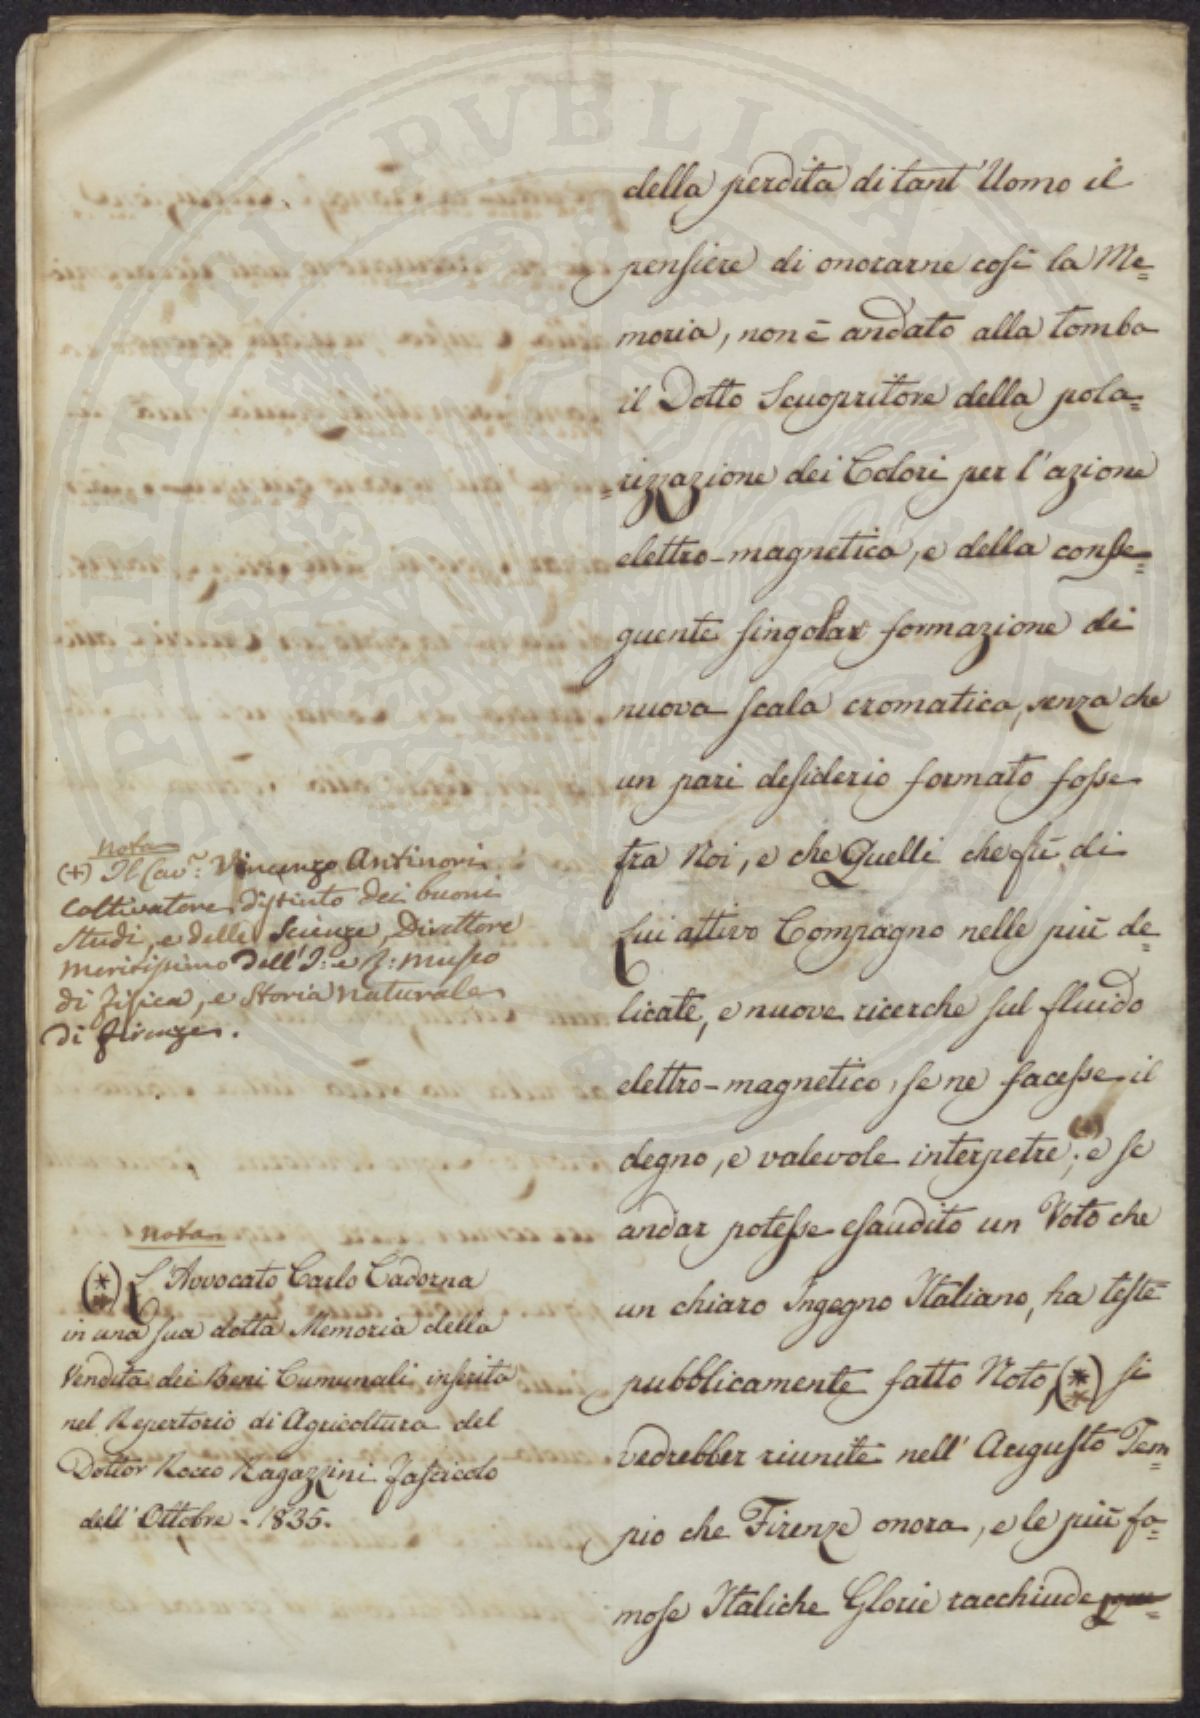 della perdita di tant'Uomo il
pensiere di onorarne così la Me=
moria, non è andato alla tomba
il Dotto Scuopritore della pola=
=rizzazione dei Colori per l'azione
elettro-magnetica, e della conse=
guente singolar formazione di
nuova scala cromatica, senza che
un pari desiderio formato fosse
tra Noi, e che Quelli che fù di
Lui attivo Compagno nelle più de=
licate, e nuove ricerche sul fluido
elettro-magnetico, se ne facesse il
degno, e valevole interpetre; (+) e se
andar potesse esaudito un Voto che
un chiaro Ingegno Italiano, ha teste=
pubblicamente fatto Noto, (**) si
vedrebber riunite nell'Augusto Tem=
pio che Firenze onora, e le più fa=
mose Italiche Glorie racchiude
nota
(+) Il Cav.: Vincenzo Antinori
Coltivatore distinto dei buoni
Studi, e delle Scienze, Direttore
meritissimo dell'I: e R: museo
di Fisica, e Storia naturale
di Firenze.
nota
(**) L'Avvocato Carlo Cadorna
in una sua dotta Memoria della
Vendita dei Beni Cumunali inserita
nel Repertorio di Agricoltura del
Dottor Rocco Ragazzini fascicolo
dell'Ottobre - 1835.
SPERITATI PVBLICAE